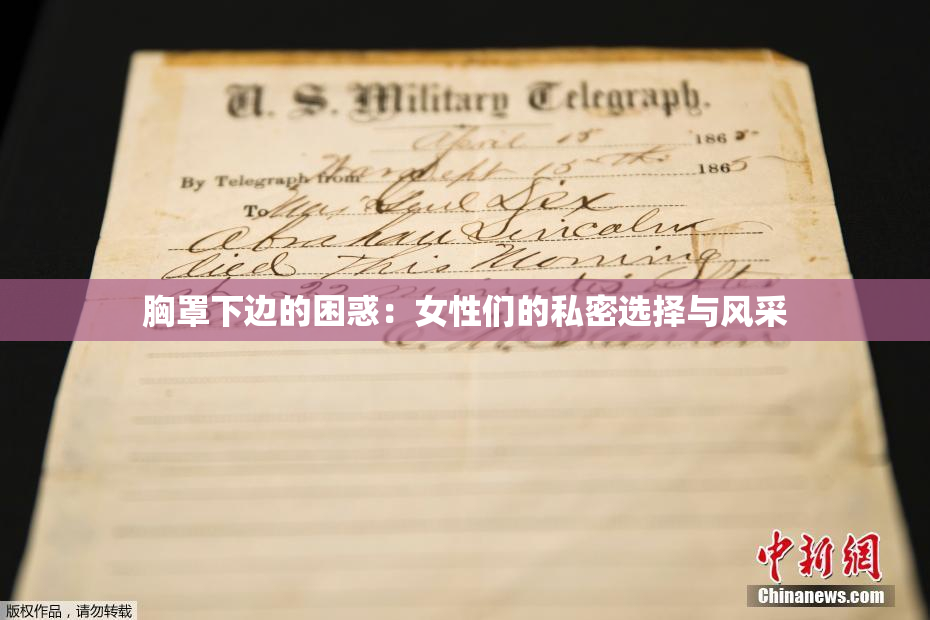 U. S. Military Telegraph.
April 15 1865
By Telegraph from War Dept 15th 1865
To Maj Genl Dix
Abraham Lincoln
died This Morning
22 minutes after
胸罩下边的困惑：女性们的私密选择与风采
E. M. Stanton
中新网
Chinanews.com
版权作品，请勿转载